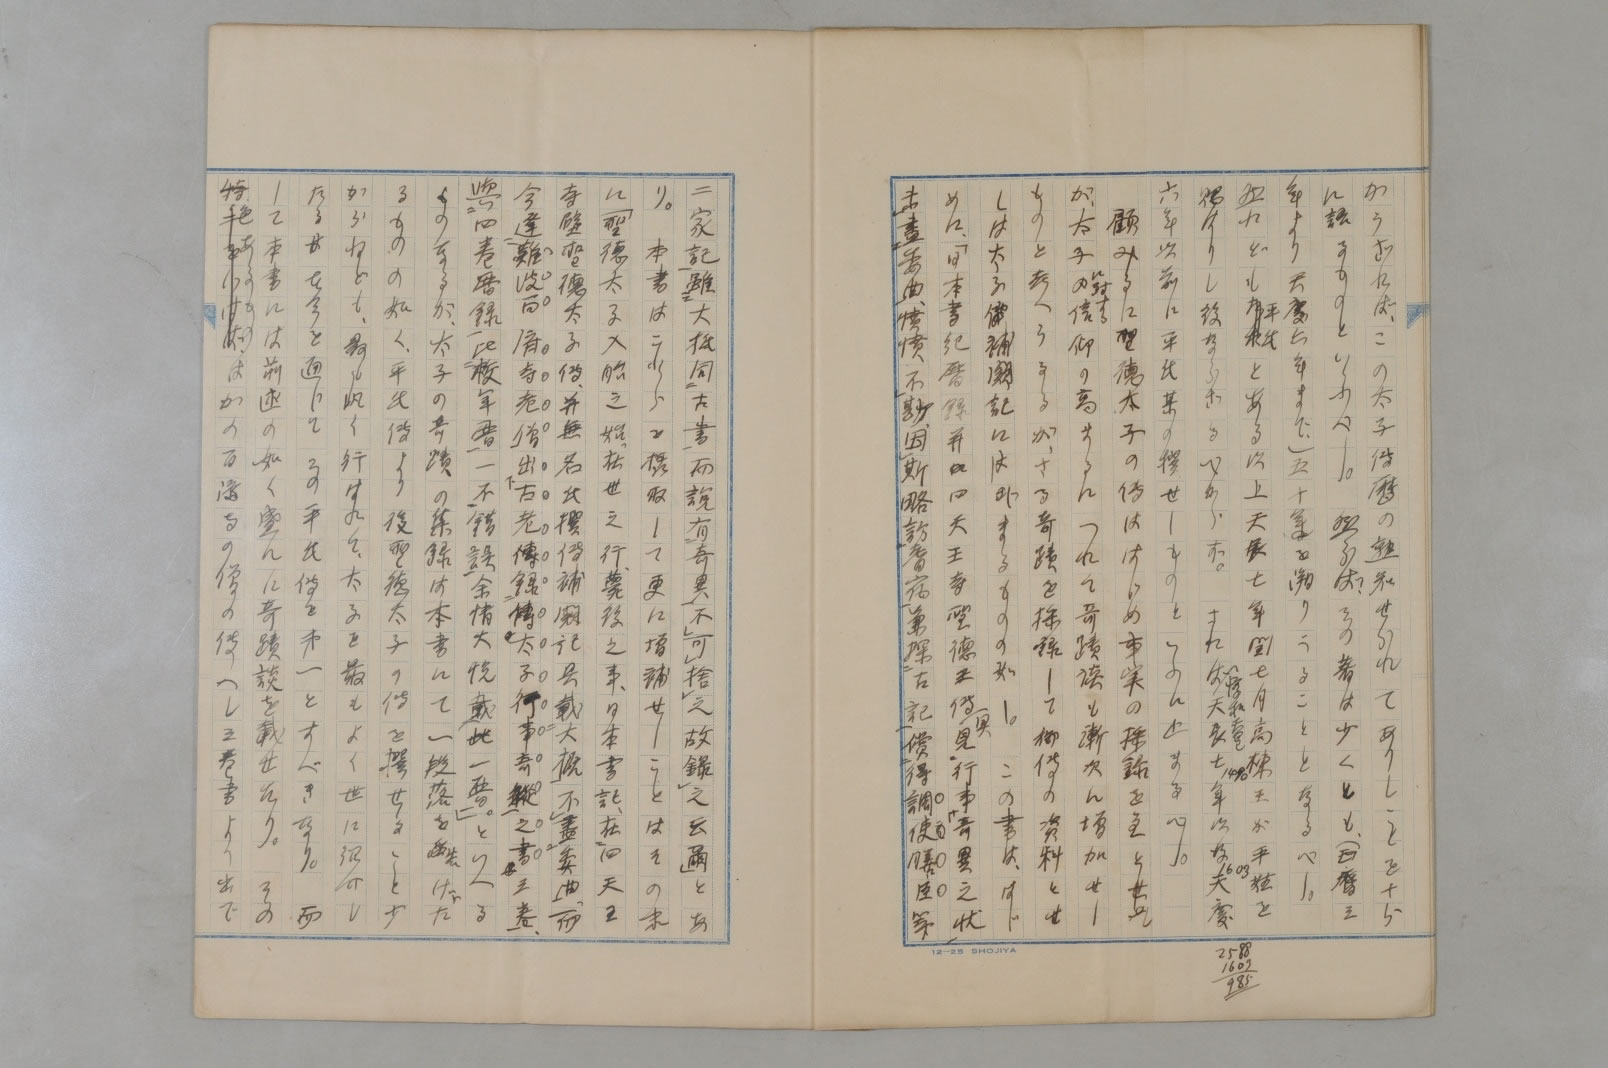 かうなれば、この太子伝暦の熟知せられてありしことを十分
に語るものといふべし。然らば、その著は少くとも、(西暦三
年より天慶六年まで)五十年を溯りうることとなるべし。
然れども平氏とある以上天長七年閏七月高棟王が平姓を
賜はりし後ならざるべからず。されば天長七年以後天慶
六年以前に平氏某の撰せしものといふに止まるべし。
顧みるに聖徳太子の傳ははじめ事実の採録を主とせし
が、太子に対する信仰の高まるにつれて奇蹟談も漸次に増加せし
ものと考へらるるが、さる奇蹟を採録して御伝の資料とせ
しは太子傳補闕記にはじまるものの如し。この書は、はじ
めに、「日本書紀暦録并四天王寺聖徳王傳具見行事奇異之状
未盡委曲、憤憤不尠、因斯略訪耆宿兼探古記償得調使膳臣等
二家記雖大抵同古書而説有奇異不可捨之故録之云爾」とあ
り。本書はこれらを採取して更に増補せしことはその末
に「聖徳太子入胎之始、在世之行、薨後之事、日本書記、在四天王
寺壁聖徳太子傳、并無名氏撰傳補闕記具載大概、不盡委曲、而
今逢難波百済寺老僧出古老傳録傳太子行事奇蹤之書三巻、
與四巻暦録比校年暦一不錯誤余情大悦載此一暦。」といへる
ものなるが、太子の奇蹟の集録は本書にて一段落を告げた
るものの如く、平氏傳より後聖徳太子の傳を撰せること少
からねども、最も汎く行はれて、太子を最もよく世に紹介し
たるは古今を通じてこの平氏傳を第一とすべきなり。而
して本書には前述の如く盛んに奇蹟談を載せたり。その
特色あるものはかの百済寺の僧の傳へし三巻書より出で
1490
1603
2588
1603
985
12-25 SHOJIYA